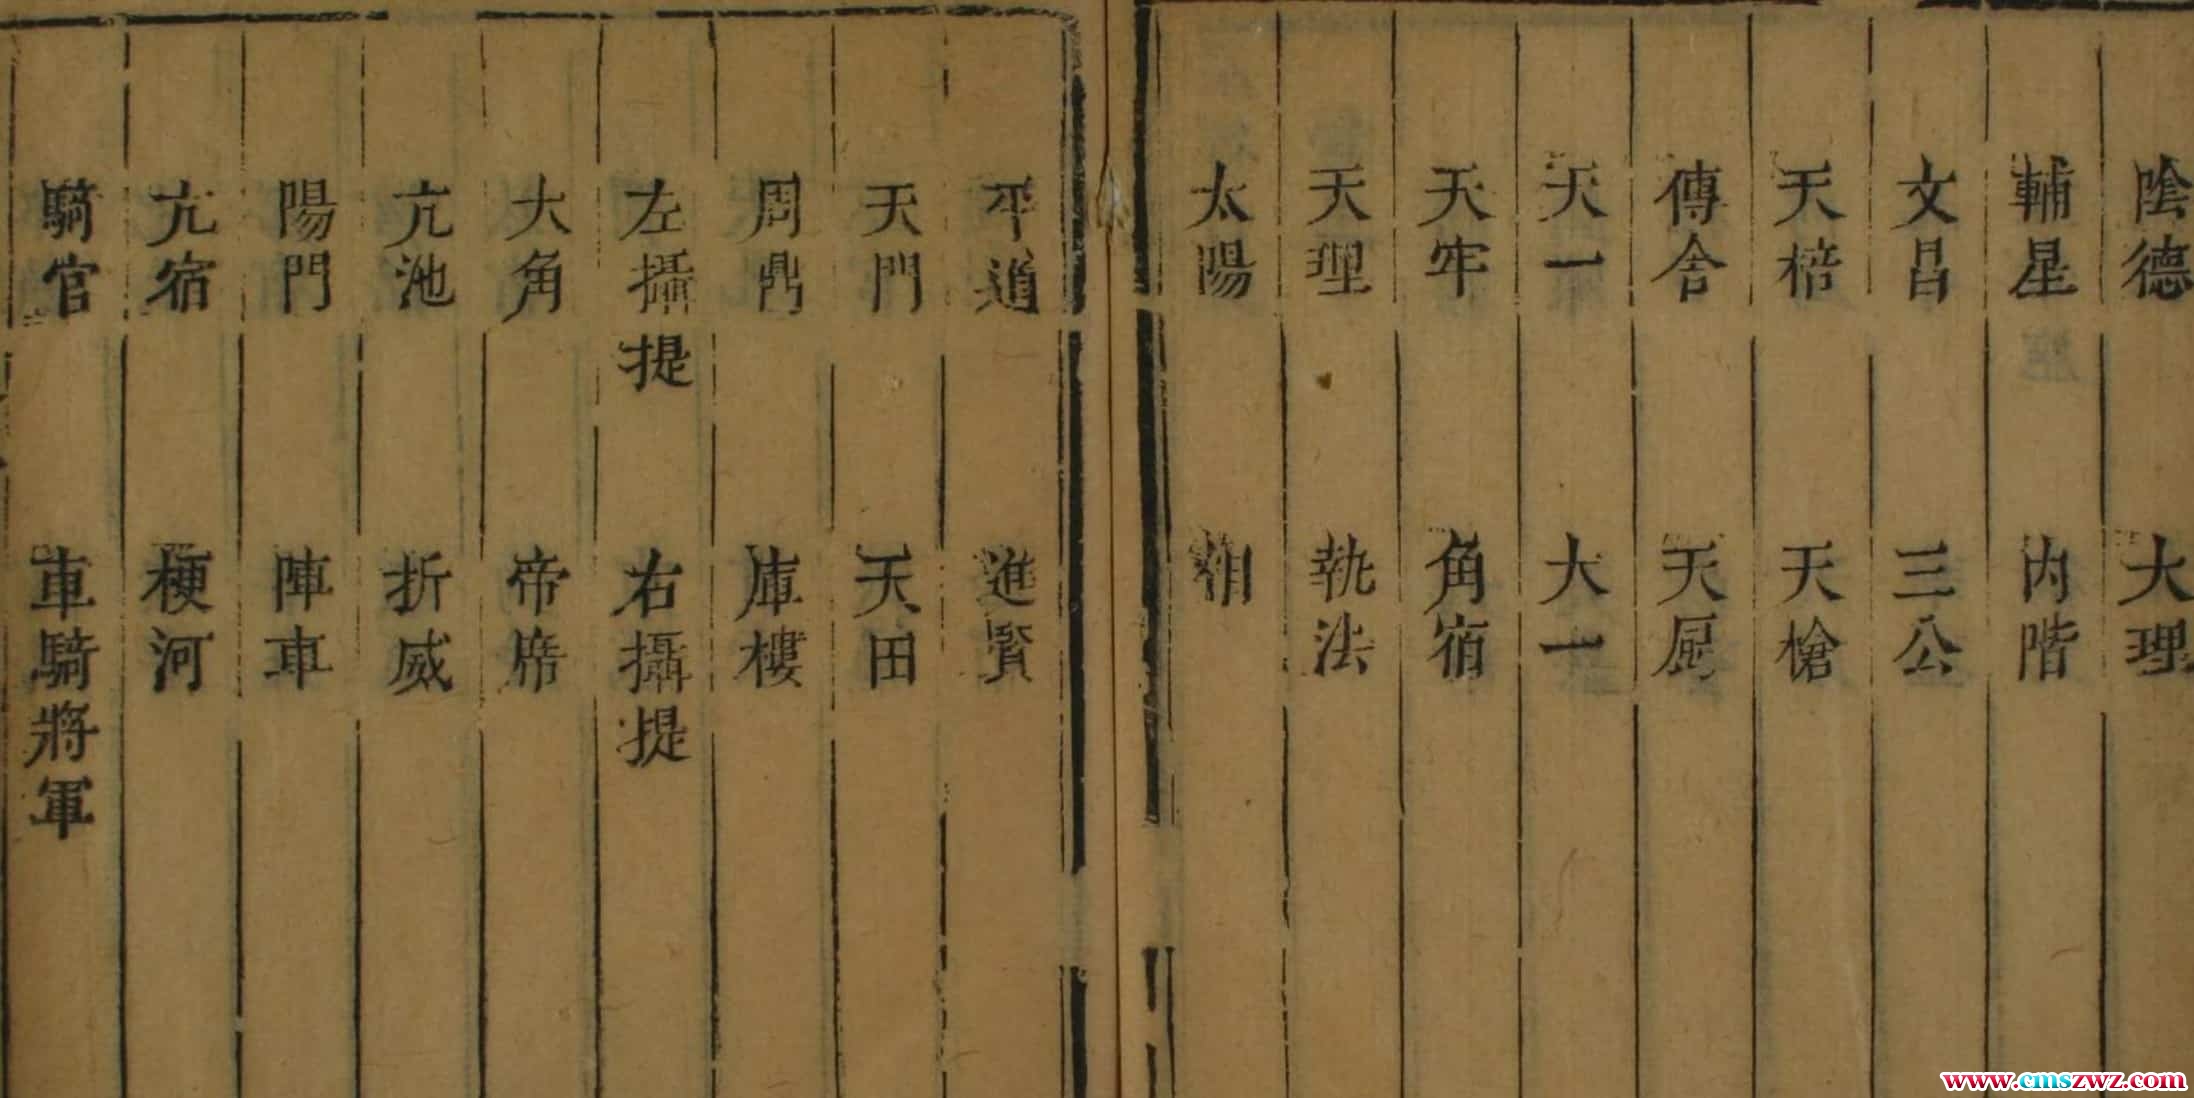 陰德 大理
輔星 內階
文昌 三公
天棓 天槍
傳舍 天厨
天一 大一
天牢 角宿
天理 執法
太陽 相
平道 進賢
天門 天田
周鼎 庫樓
左攝提 右攝提
大角 帝席
亢池 折威
陽門 陣車
亢宿 梗河
騎官 車騎將軍
www.cmszwz.com